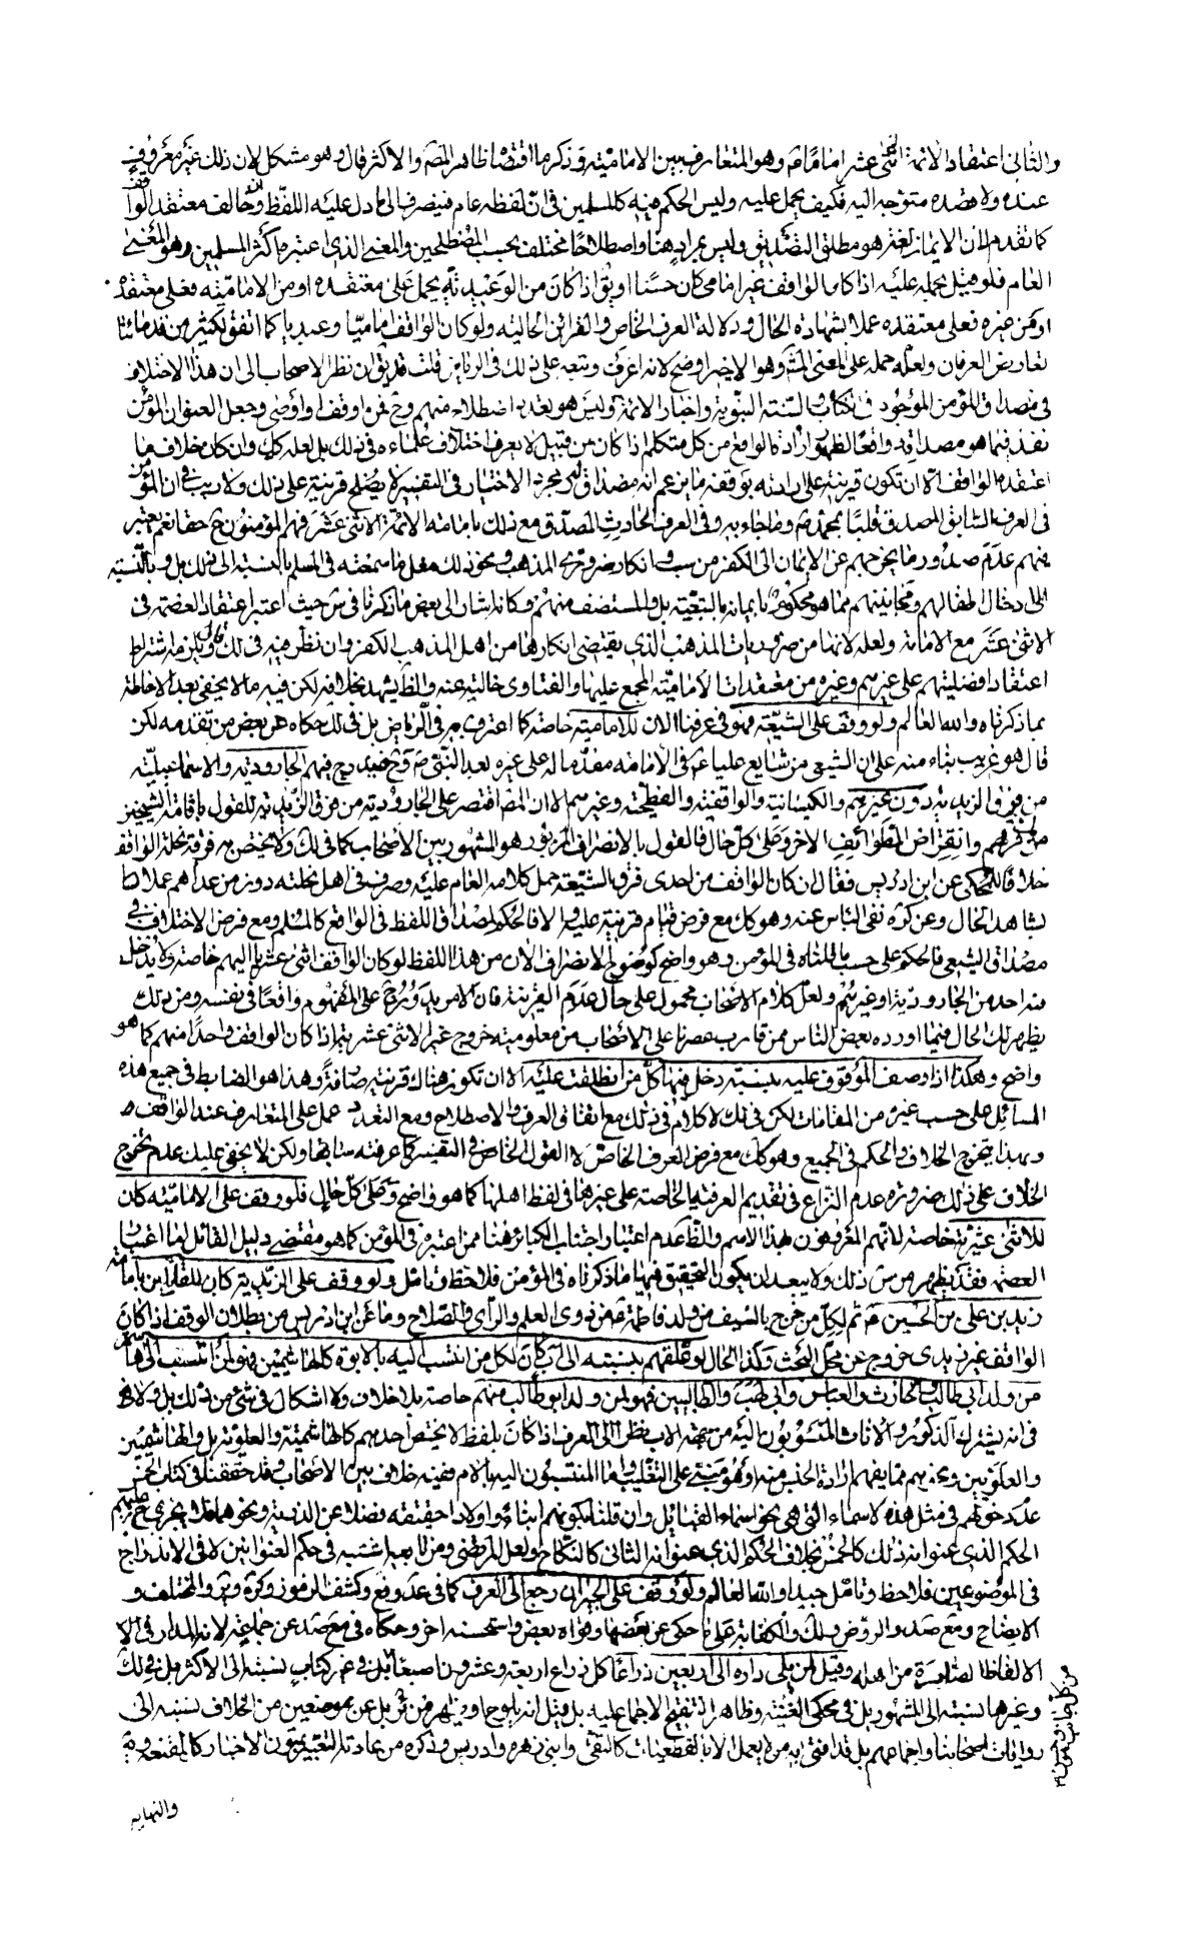 والثاني اعتقاد الائمة الاثنى عشر اماما م وهو المتعارف بين الامامية وذكر ما اقتضا ظاهر المص والاكثر قال وهو مشكل لان ذلك غير معروف
عنده ولا قصده متوجه اليه فكيف يحمل عليه وليس الحكم فيه كالمسلمين في ان لفظه عام فينصرف الى ما دل عليه اللفظ وان خالف معتقد الواقف
كما تقدم لان الايمان لغة هو مطلق التصديق وليس بمراد هنا واصطلاحا مختلف بحسب المصطلحين والمعنى الذي اعتبره اكثر المسلمين وهو المعنى
العام فلو قيل بحمله عليه اذا كان الواقف غير امامي كان حسنا او بق اذا كان من الوعيدية يحمل على معتقده او من الامامية فعلى معتقده
او من غيره فعلى معتقده عملا بشهادة الحال ودلالة العرف الخاص والقرائن الحالية ولو كان الواقف اماميا وعيديا كما اتفق لكثير من قدمائنا
تعارض العرفان ولعله حمله على المعنى المش وهو الاخير اوضح لانه اعرف وتبعه على ذلك في الرياض قلت قد يق ان نظر الاصحاب الى ان هذا الاختلاف
في مصداق المؤمن الموجود في الكتاب والسنة النبوية واخبار الائمة وليس هو تعدد اصطلاح منهم وح فمن اوقف او اوصى وجعل العنوان المؤمن
نفذ فيما هو مصداقه واقعا لظهور ارادة الواقع من كل متكلم اذا كان من قبيل لا يعرف اختلاف علماءه في ذلك بل لعله كك وان كان خلاف ما
اعتقده الواقف الا ان تكون قرينة على ارادته بوقفه ما يزعم انه مصداق له ومجرد الاختيار في التفسير لا يصلح قرينة على ذلك ولا ريب في ان المؤمن
في العرف السابق المصدق قلبا بمحمد ص وما جاء به وفي العرف الحادث المصدق مع ذلك بامامة الائمة الاثنى عشر فهم المؤمنون ح حقا نعم يعتبر
فيهم عدم صدور ما يخرجهم عن الايمان الى الكفر من سب او انكار ضروري المذهب ونحو ذلك مثل ما سمعته في المسلم بالنسبة الى ذلك بل وبالنسبة
الى ادخال اطفالهم ومجانينهم مما هو محكوم بايمانه بالتبعية بل والمستضعف منهم وكانه اشار الى بعض ما ذكرنا في ش حيث اعتبر اعتقاد العصمة في
الاثنى عشر مع الامامة ولعله لانها من ضروريات المذهب الذي يقتضي انكارها من اهل المذهب الكفر وان نظر فيه في لك قال ويلزمه اشتراط
اعتقاد افضليتهم على غيرهم وغيره من معتقدات الامامية المجمع عليها والفتاوى خالية عنه والظ يشهد بخلافه لكن فيه ما لا يخفى بعد الاحاطة
بما ذكرناه والله العالم ولو وقف على الشيعة فهو في عرفنا الان للامامية خاصة كما اعترف به في الرياض بل في لك حكاه عن بعض من تقدمه لكن
قال هو غريب بناء منه على ان الشيعي من شايع عليا ع في الامامة مقدما له على غيره بعد النبي ص وح فيندرج فيهم الجارودية والاسماعيلية
من فرق الزيدية دون غيرهم والكيسانية والواقفية والفطحية وغيرهم الا ان المص اقتصر على الجارودية من فرق الزيدية للقول بامامة الشيخين
من غيرهم وانقراض الطوائف الاخر وعلى كل حال فالقول بالانصراف المزبور هو المشهور بين الاصحاب كما في لك ولا يختص به فرقة نحلة الواقف
خلافا للمحكي عن ابن ادريس فقال ان كان الواقف من احدى فرق الشيعة حمل كلامه العام عليه وصرف في اهل نحلته دون من عداهم عملا
بشاهد الحال وعن كره نفى الباس عنه وهو كك مع فرض قيام قرينة عليه والا فالحكم لمصداق اللفظ في الواقع كالمسلم ومع فرض الاختلاف في
مصداق الشيعي فالحكم على حسب ما قلناه في المؤمن وهو واضح كوضوح الانصراف الان من هذا اللفظ لو كان الواقف اثنى عشريا اليهم خاصة ولا يدخل
منه احد من الجارودية او غيرهم ولعل كلام الاصحاب محمول على حال عدم القرينة فان الامر يدور ح على المفهوم واقعا في نفسه ومن ذلك
يظهر لك الحال فيما اورده بعض الناس ممن قارب عصرنا على الاصحاب من معلومية خروج غير الاثنى عشرية اذا كان الواقف واحدا منهم كما هو
واضح وهكذا اذا وصف الموقوف عليه بنسبة دخل فيها كل من انطلقت عليه الا ان تكون هناك قرينة صارفة وهذا هو الضابط في جميع هذه
المسائل على حسب غيره من المقامات لكن في لك لا كلام في ذلك مع اتفاق العرف والاصطلاح ومع التعدد حمل على المتعارف عند الواقف
وبهذا يتخرج الخلاف والحكم في الجميع وهو كك مع فرض العرف الخاص لا القول الخاص في التفسير كما عرفته سابقا ولكن لا يخفى عليك عدم تخرج
الخلاف على ذلك ضرورة عدم النزاع في تقديم العرفية الخاصة على غيرها في لفظ اهلها كما هو واضح وعلى كل حال فلو وقف على الامامية كان
للاثنى عشرية خاصة لانهم المعروفون بهذا الاسم والظ عدم اعتبار اجتناب الكبائر هنا ممن اعتبره في المؤمن كما هو مقتضى دليل القائل اما اعتبار
العصمة فقد يظهر من ش ذلك ولا يبعد ان يكون التحقيق فيها ما ذكرناه في المؤمن فلاحظ وتامل ولو وقف على الزيدية كان للقائلين بامامة
زيد بن على بن الحسين ع ثم لكل من خرج بالسيف من ولد فاطمة ع من ذوى العلم والراى والصلاح وما عن ابن ادريس من بطلان الوقف اذا كان
الواقف غير زيدى خروج عن محل البحث وكذا الحال لو علقهم بنسبته الى اب كان لكل من انتسب اليه بالابوة كالهاشميين فهو لمن انتسب الى هاشم
من ولد ابى طالب والحارث والعباس وابى لهب والطالبيين فهو لمن ولده ابو طالب منهم خاصة بلا خلاف ولا اشكال في شئ من ذلك بل ولا
في انه يشترك الذكور والاناث المنسوبون اليه من جهة الاب نظرا الى العرف اذا كان بلفظ لا يختص احدهم كالهاشمية والعلوية بل والهاشميين
والعلويين ونحوهم مما يفهم ارادة الجنس منه او هو مبنى على التغليب واما المنتسبون اليه بالام ففيه خلاف بين الاصحاب وقد حققنا في كتاب الخمس
عدم دخولهم في مثل هذه الاسماء التى هى نحو اسماء القبائل وان قلنا بكونهم ابناء واولادا حقيقة فضلا عن الذرية ونحوها فلا يجرى ح عليهم
الحكم الذي عنوانه ذلك كالخمس بخلاف الحكم الذي عنوانه الثانى كالنكاح ولعل المرتضى ومن تابعه اشتبه في حكم العنوانين لا في الاندراج
في الموضوعين فلاحظ وتامل جيدا والله العالم ولو وقف على الجيران رجع الى العرف كما في عد وفع وكشف الرموز وكره وش والمختلف و
الايضاح ومع صد والروض ولك والكفاية على ما حكى عن بعضها وقواه بعض واستحسنه اخر وحكاه في مع صد عن جماعة لانه المدار في
الالفاظ الصادرة من اهله وقيل لمن يلى داره الى اربعين ذراعا كل ذراع اربعة وعشرون اصبعا بل في غير كتاب نسبته الى الاكثر بل في لك
وغيرها نسبته الى المشهور بل في محكي الغنية وظاهر التنقيح الاجماع عليه بل قيل انه يلوح او يظهر من ئر بل عن موضعين من الخلاف نسبته الى
روايات اصحابنا واجماعهم بل قد افتى به من لا يعمل الا بالقطعيات كالتقى وابنى زهره وادريس وذكره من عادته التعبير بمتون الاخبار كالمقنعة و
والنهاية